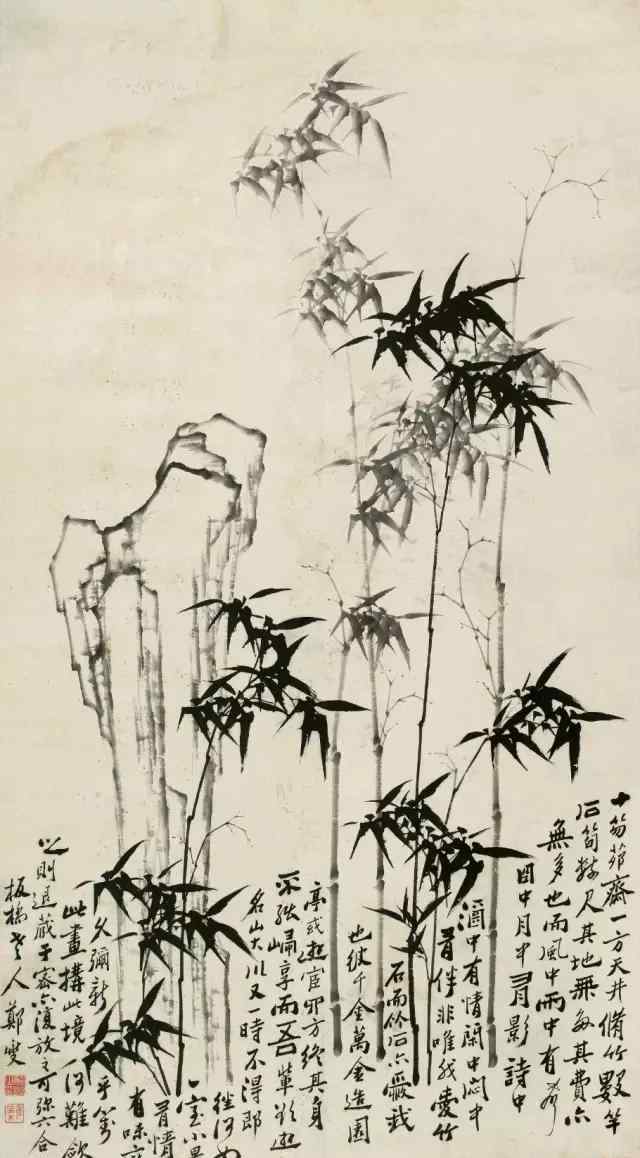 十笏茆齋一方天井脩竹數竿
石筍數尺其地無多其費亦
無多也而風中雨中有聲
日中月中有影詩中
酒中有情閑中悶中
有伴非唯我愛竹
石而竹石亦愛我
也彼千金萬金造園
亭或遊宦四方終其身
不能歸享而吾輩欲遊
名山大川又一時不得即
往何如
一室小景
有情
有味
久彌新
乎
此畫搆此境何難歛
之則退藏于密亦復放之可彌六合
板橋老人鄭燮